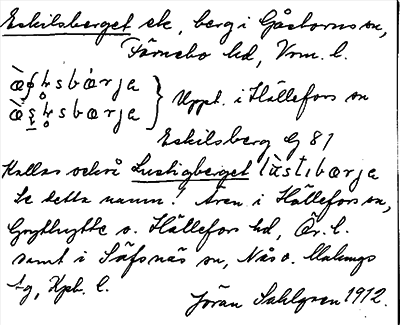 Eskilsberget ek, berg i Gåsborns sn,
Färnebo hd, Vrm. l.
Uppt. i Hällefors sn
Eskilsberg G 81
Kallas också Lustigberget lùstıbærja
Se detta namn! Även i Hällefors sn,
Grythytte o. Hällefors hd, Ör. l.
samt i Säfsnäs sn, Nås o. Malungs
tg, Kpb. l.
Jöran Sahlgren 1912.